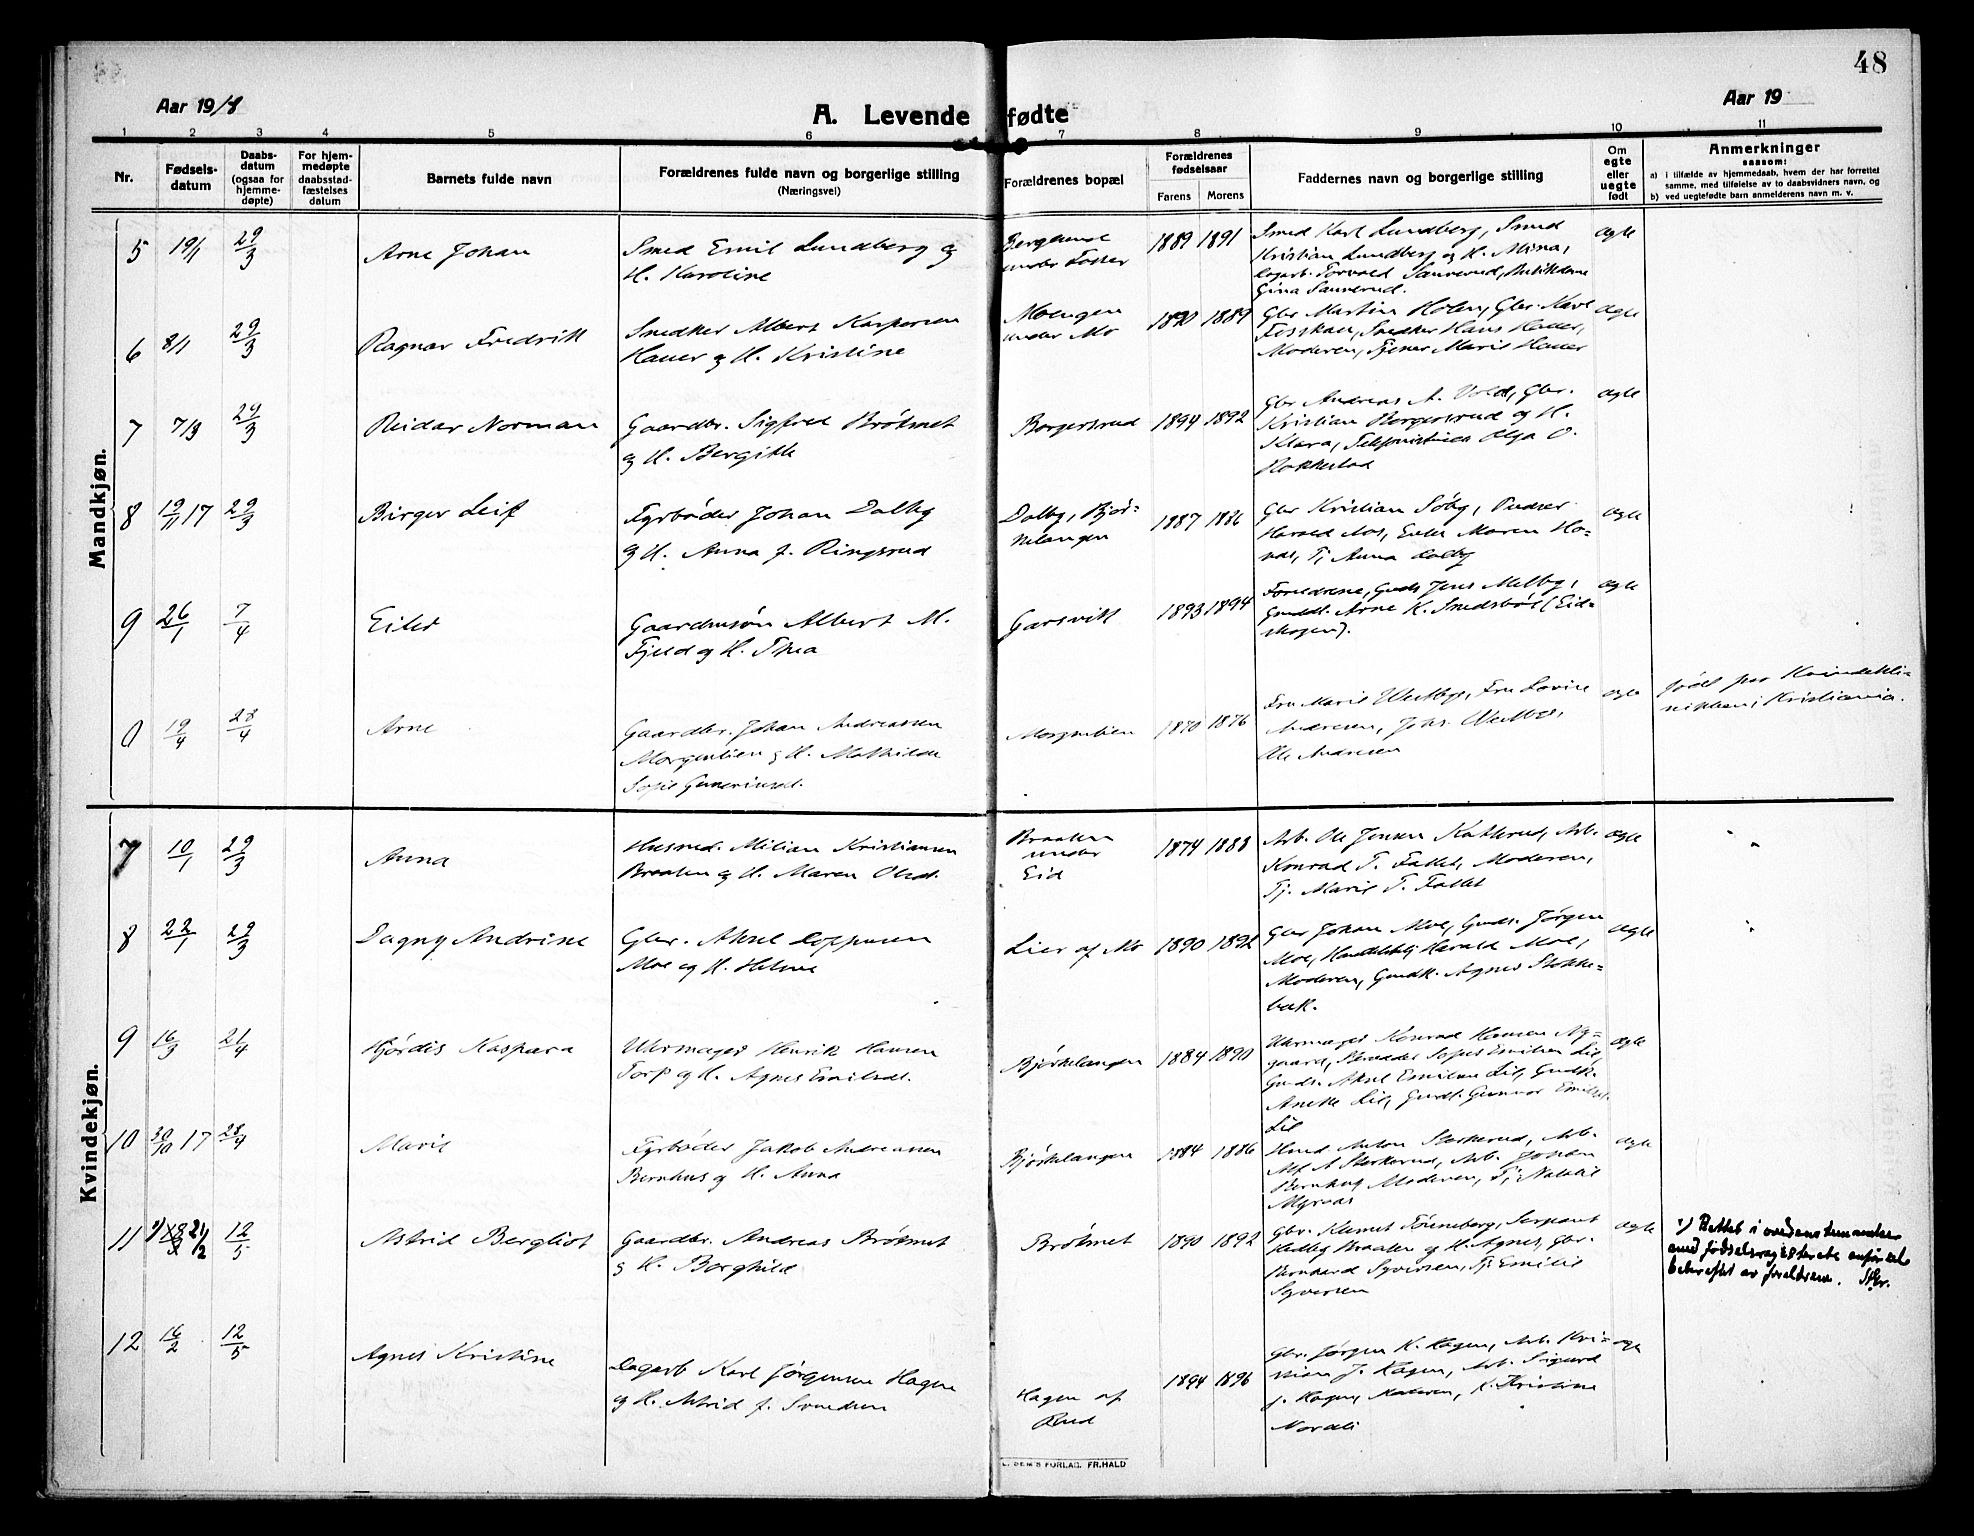 48
Aar 1918
A. Levende fødte
Aar 19
1 2 3 4 5 6 7 8 9 10 11
Nr.
Fødsels-
datum
Daabs-
datum
(ogsaa for
hjemme-
døpte)
For hjem-
medøpte
daabsstad-
fæstelses
datum
Barnets fulde navn
Forældrenes fulde navn og borgerlige stilling
(Næringsvei)
Forældrenes bopæl
Forældrenes
fødselsaar
Farens Morens
Faddernes navn og borgerlige stilling
Om
egte
eller
uegte
født
Anmerkninger
saasom:
a) i tilfælde av hjemmedaab, hvem der har forrettet
samme, med tilføielse av to daabsvidners navn, og
b) ved uegtefødte barn anmelderens navn m. v.
Mandkjøn.
5 19/1 29/3 Arne Johan
Smed Emil Lundberg og
H. Karoline
under
1889 1891
Smed Karl Lundberg, Smed
Kristian Lundberg og H. Mina,
Dagarb. Torvald Sanverud,
Gina Sanverud.
ægte
6 8/1 29/3 Ragnar Fredrik
Snedker Albert Kaspersen
Hauer og H. Kristine
Moengen
under Mo
1890 1889
Gbr Martin Holen, Gbr. Karl
Fosskau, Snedker Hans Hauer,
Moderen, Tjener Marie Hauer
ægte
7 7/3 29/3 Reidar Norman
Gaardbr. Sigfred Bråtnet
og H. Bergitte
Borgersrud
1894 1892
Gbr Andreas A. Vold, Gbr.
Kristian Borgersrud og H.
Klara, Telefonistinde Olga O.
Kokkestad
ægte
8 19/11 17 29/3 Birger Leif
Fyrbøder Johan Dalby
og H. Anna f. Ringsrud
Dalby, Bjør-
kelangen
1887 1886
Gbr Kristian Søby, Pudser
Harald Mos, Enke Maren Ho-
Tj. Anna Dalby
ægte
9 26/1 7/4 Eiler
Gaardmsøn Albert M.
Fjeld og H. Thea
Garsvik
1893 1894
Forældrene, Gards. Jens Melby,
Arne K. Smedsbøl (Eid-
skogen).
ægte
0 19/4 28/4 Arne
Gaardbr. Johan Andreassen
Morgenlien og H. Mathilde
Sofie Guneriusd.
Morgenlien
1870 1876
Fru Marie Westbye, Fru Lovise
Andresen, Johs. Westbye,
Ole Andresen
ægte
født paa Kvindekli-
nikken i Kristiania.
Kvindekjøn.
7 10/1 29/3 Anna
Husmd. Milian Kristiansen
Braaten og H. Maren Olsd.
Braaten
under
Eid
1874 1888
Arb. Ole Jensen Kathrud, Arb.
Konrad T. Fallet, Moderen,
Tj. Marie T. Fallet
ægte
8 22/1 29/3 Dagny Andrine
Gbr. Aksel
Moe og H. Helene
Lier af Mo
1890 1892
Gbr Johan Moe, Gards. Jørgen
Moe, Handelsbtj Harald Moe,
Moderen, Gaardk. Agnes Stokke-
bæk.
ægte
9 16/3 21/4 Hjørdis Kaspara
Uhrmager Henrik Hansen
Torp og H. Agnes Emilsd.
Bjørkelangen
1884 1890
Uhrmager Konrad Hansen Ny-
gaard, Skrædder Sofus Emilsen Lie,
Gards. Aksel Emilsen Lie, Gaardk.
Anette Lie, Gaardk. Gunvor Emilsd.
Lie
ægte
10 30/10 17 28/4 Marie
Fyrbøder Jakob Andreassen
Bernhus og H. Anna
Bjørkelangen
1884 1886
Husmd Anton Storkerud, Arb.
A Storkerud, Arb. Johan
Bernhus, Moderen, Tj. Natalie
Myraas
ægte
11 ¹) 21/2 12/5 Astrid Bergliot
Gaardbr. Andreas Bråtnet
og H. Borghild
Bråtnet
1890 1892
Gbr. Kasmet Tønneberg, Sersjant
Hedley Braaten og H. Agnes,
Bernhard Syversen, Tj. Emilie
Syversen
ægte
¹) Rettet i overensstemmelse
med fødselsregisterets anførsel
bekreftet av foreldrene.
12 16/2 12/5 Agnes Kristine
Dagarb Karl Jørgensen Hagen
og H. Astrid f. Svendsen
Hagen af
Rud
1894 1896
Gbr. Jørgen K. Hagen, Arb. Kri-
stian J. Hagen, Arb. Sigurd
J. Hagen, Moderen, K. Kristine
Nordli
ægte
FORLAG. FR. HALD